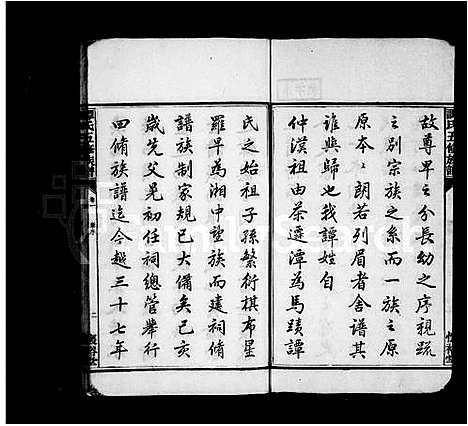 故尊卑之分長幼之序親疏
之别宗族之系而一族之原
原本〻朗若列眉者舍譜其
誰與歸也我譚姓自
仲漠祖由茶遷潭為馬蹟譚
氏之始祖子孫繁衍棋布星
羅早為湘中望族而建祠脩
譜族制家規已大備矣己亥
歲先父晃初任祠總管舉行
四脩族譜迄今越三十七年
譚氏五脩族譜
卷一
二
FamilySearch